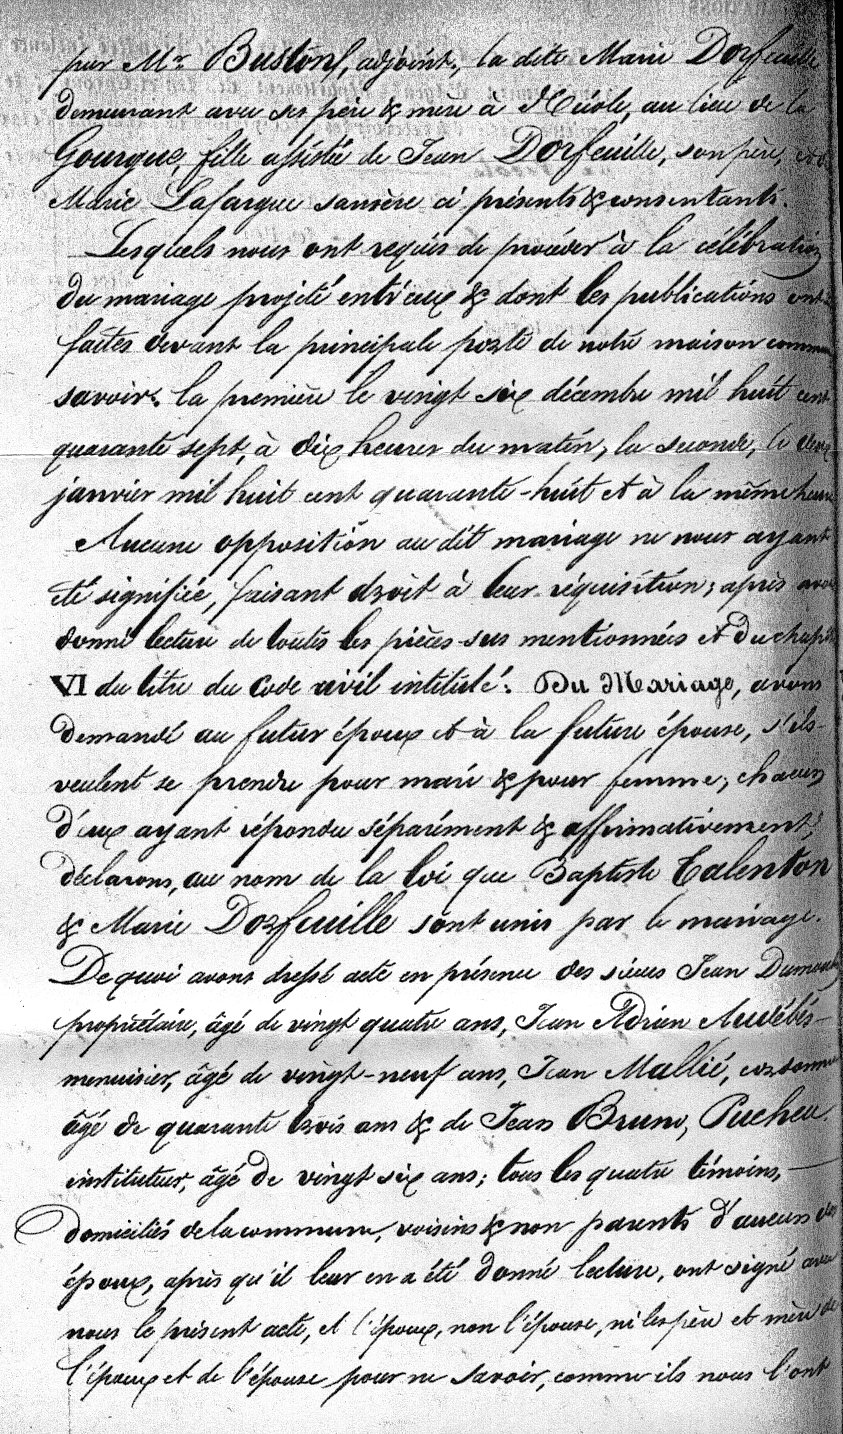 par Mr. Bustonf, adjoint, la dite Marie Dorfeuille
demeurant avec ses père & mère à Nicole, au lieu de la
Gourgue, fille assistée de Jean Dorfeuille, son père, et de
Marie Lafargue sa mère ci présents & consentants.
Lesquels nous ont requis de procéder à la célébration
du mariage projeté entr'eux & dont les publications ont été
faites devant la principale porte de notre maison commune
savoir: la première le vingt six décembre mil huit cent
quarante sept, à dix heures du matin, la seconde, le deux
janvier mil huit cent quarante-huit et à la même heure
Aucune opposition au dit mariage ne nous ayant
été signifiée, faisant droit à leur réquisition; après avoir
donné lecture de toutes les pièces sus mentionnées et du chapitre
VI du titre du Code civil intitulé: Du Mariage, avons
demandé au futur époux et à la future épouse, s'ils
veulent se prendre pour mari & pour femme, chacun
d'eux ayant répondu séparément & affirmativement,
déclarons, au nom de la loi que Baptiste Talenton
& Marie Dorfeuille sont unis par le mariage.
De quoi avons dressé acte en présence des sieurs Jean
propriétaire, âgé de vingt quatre ans, Jean Adrien
menuisier, âgé de vingt-neuf ans, Jean Mallié, cordonnier
âgé de quarante trois ans & de Jean Bruno, Pucheu.
instituteur, âgé de vingt six ans; tous les quatre témoins,
domiciliés de la commune, voisins & non parents d'aucun des
époux, après qu'il leur en a été donné lecture, ont signé avec
nous le présent acte, et l'époux, non l'épouse, ni les père et mère de
l'époux et de l'épouse pour ne savoir, comme ils nous l'ont